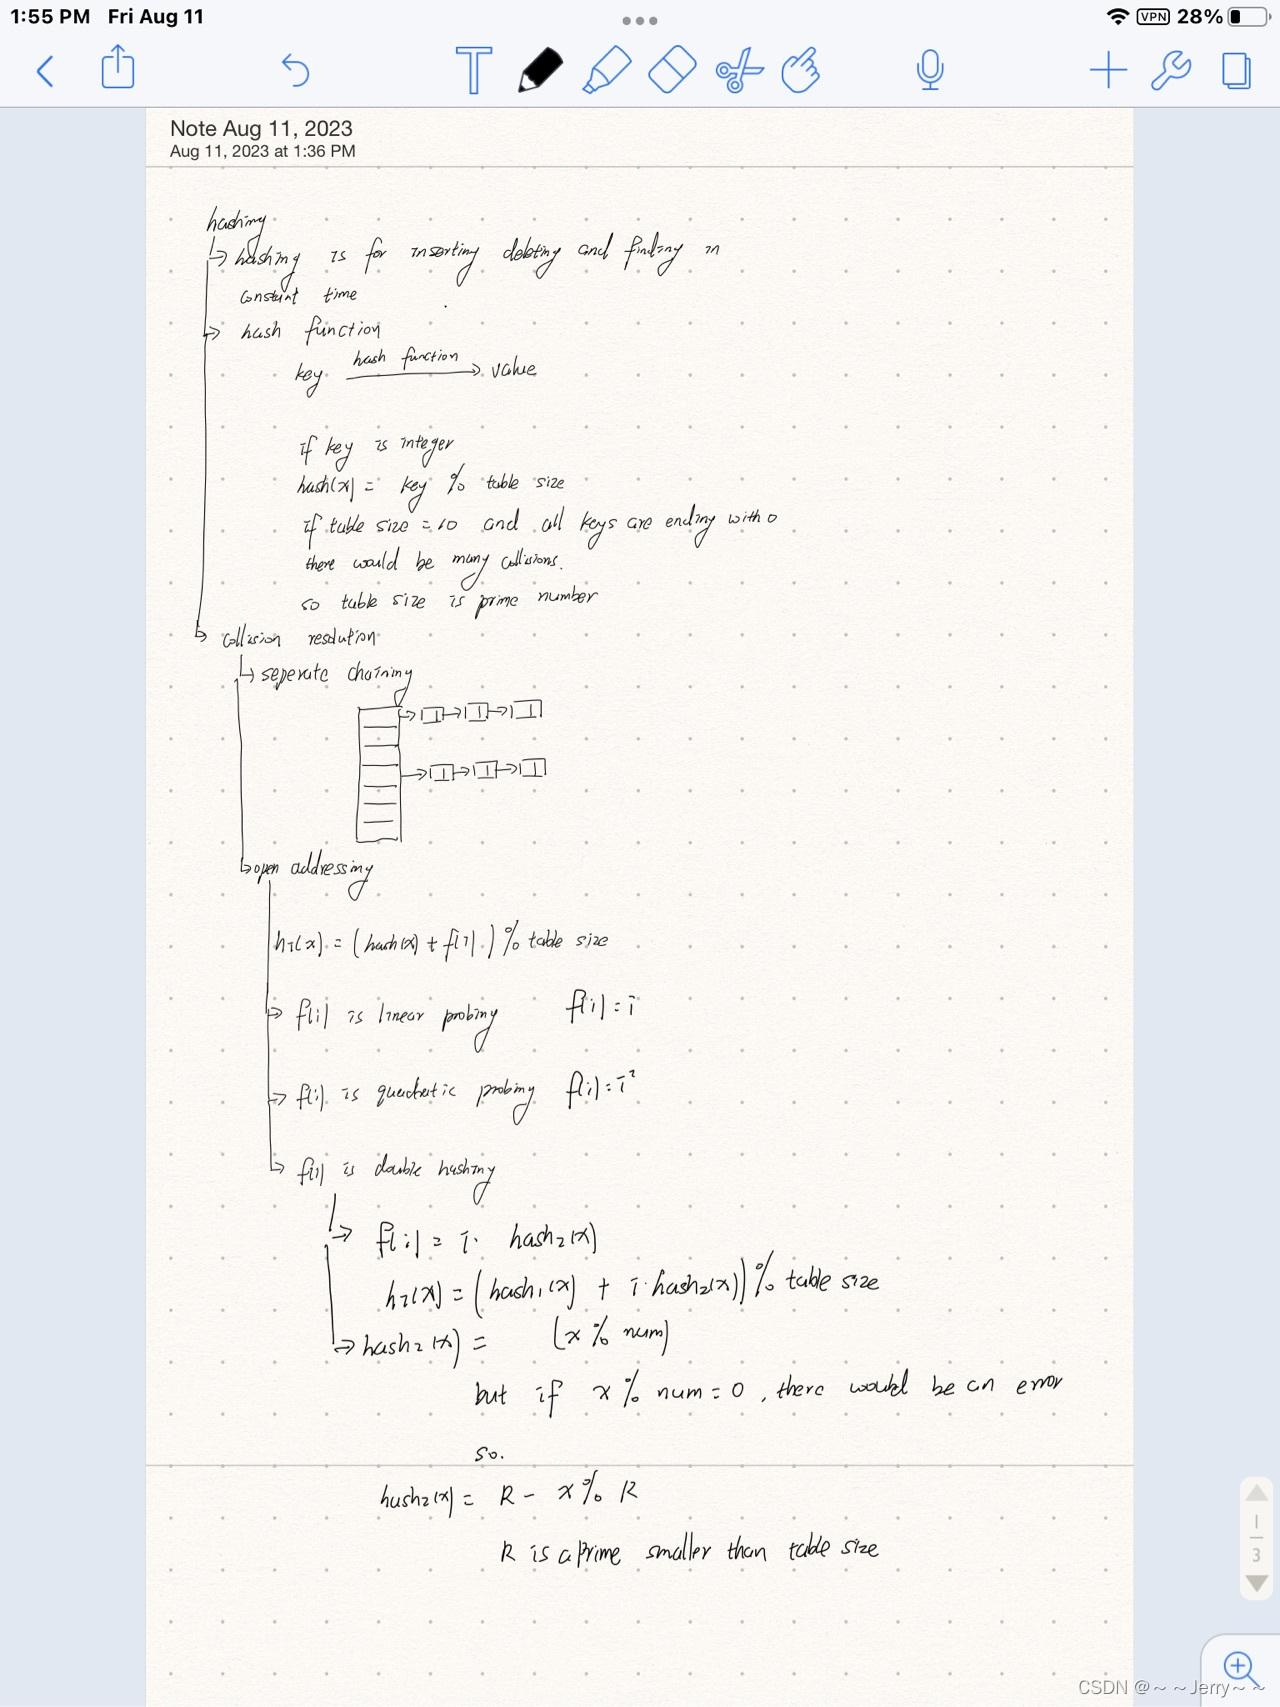 1:55 PM Fri Aug 11
VPN 28%
Note Aug 11, 2023
Aug 11, 2023 at 1:36 PM
hashing
hashing is for inserting deleting and finding in
constant time
hash function
key hash function value
if key is integer
hash(x) = key % table size
if table size = 10 and all keys are ending with 0
there would be many collisions.
so table size is prime number
collision resolution
seperate chaining
open addressing
hi(x) = (hash(x) + f(i)) % table size
f(i) is linear probing f(i) = i
f(i) is quadratic probing f(i) = i²
f(i) is double hashing
f(i) = i · hash₂(x)
hi(x) = (hash₁(x) + i · hash₂(x)) % table size
hash₂(x) = (x % num)
but if x % num = 0, there would be an error
so.
hash₂(x) = R - x % R
R is a prime smaller than table size
1
3
CSDN @~ ~Jerry~ ~